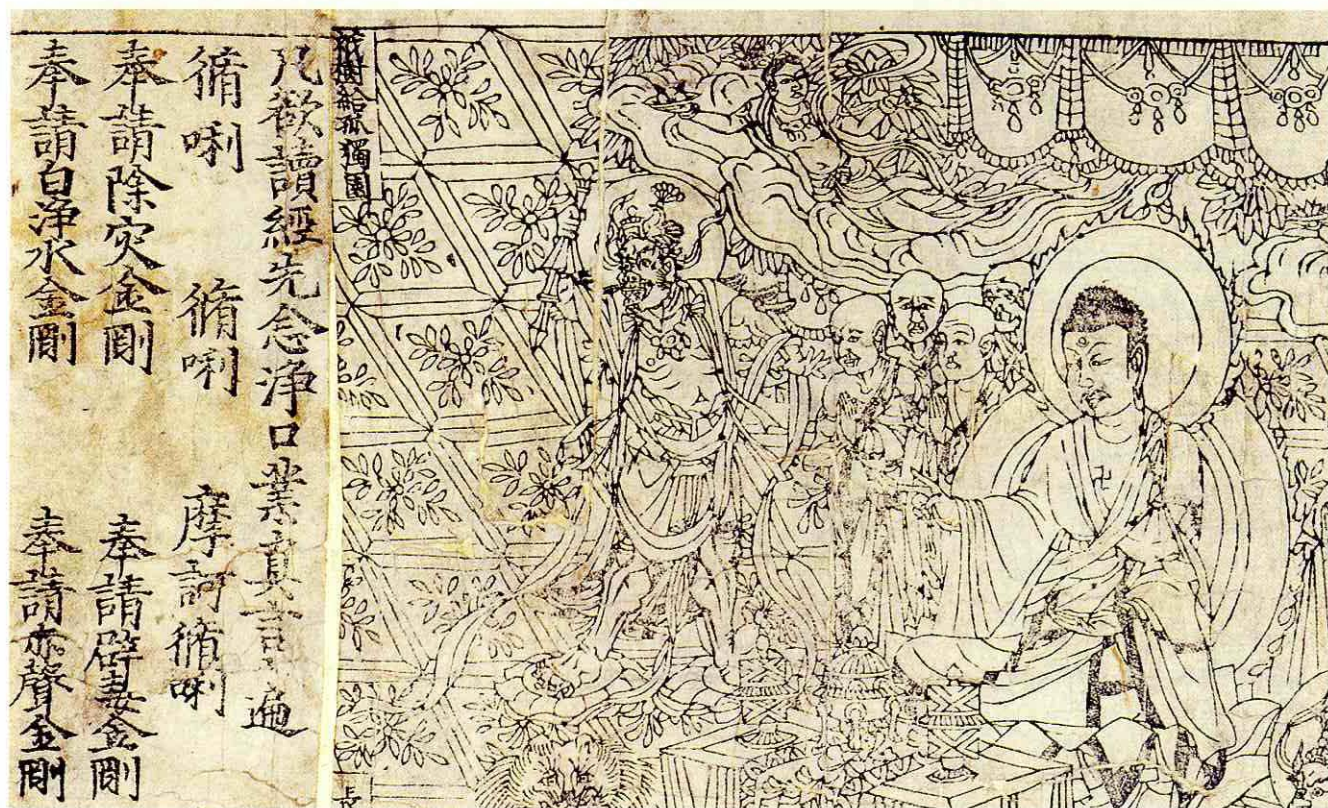 祇樹給孤獨園
長
凡欲讀經先念浄口業真言一遍
脩唎 脩唎 摩訶脩唎
奉請除灾金剛 奉請辟毒金剛
奉請白浄水金剛 奉請赤聲金剛